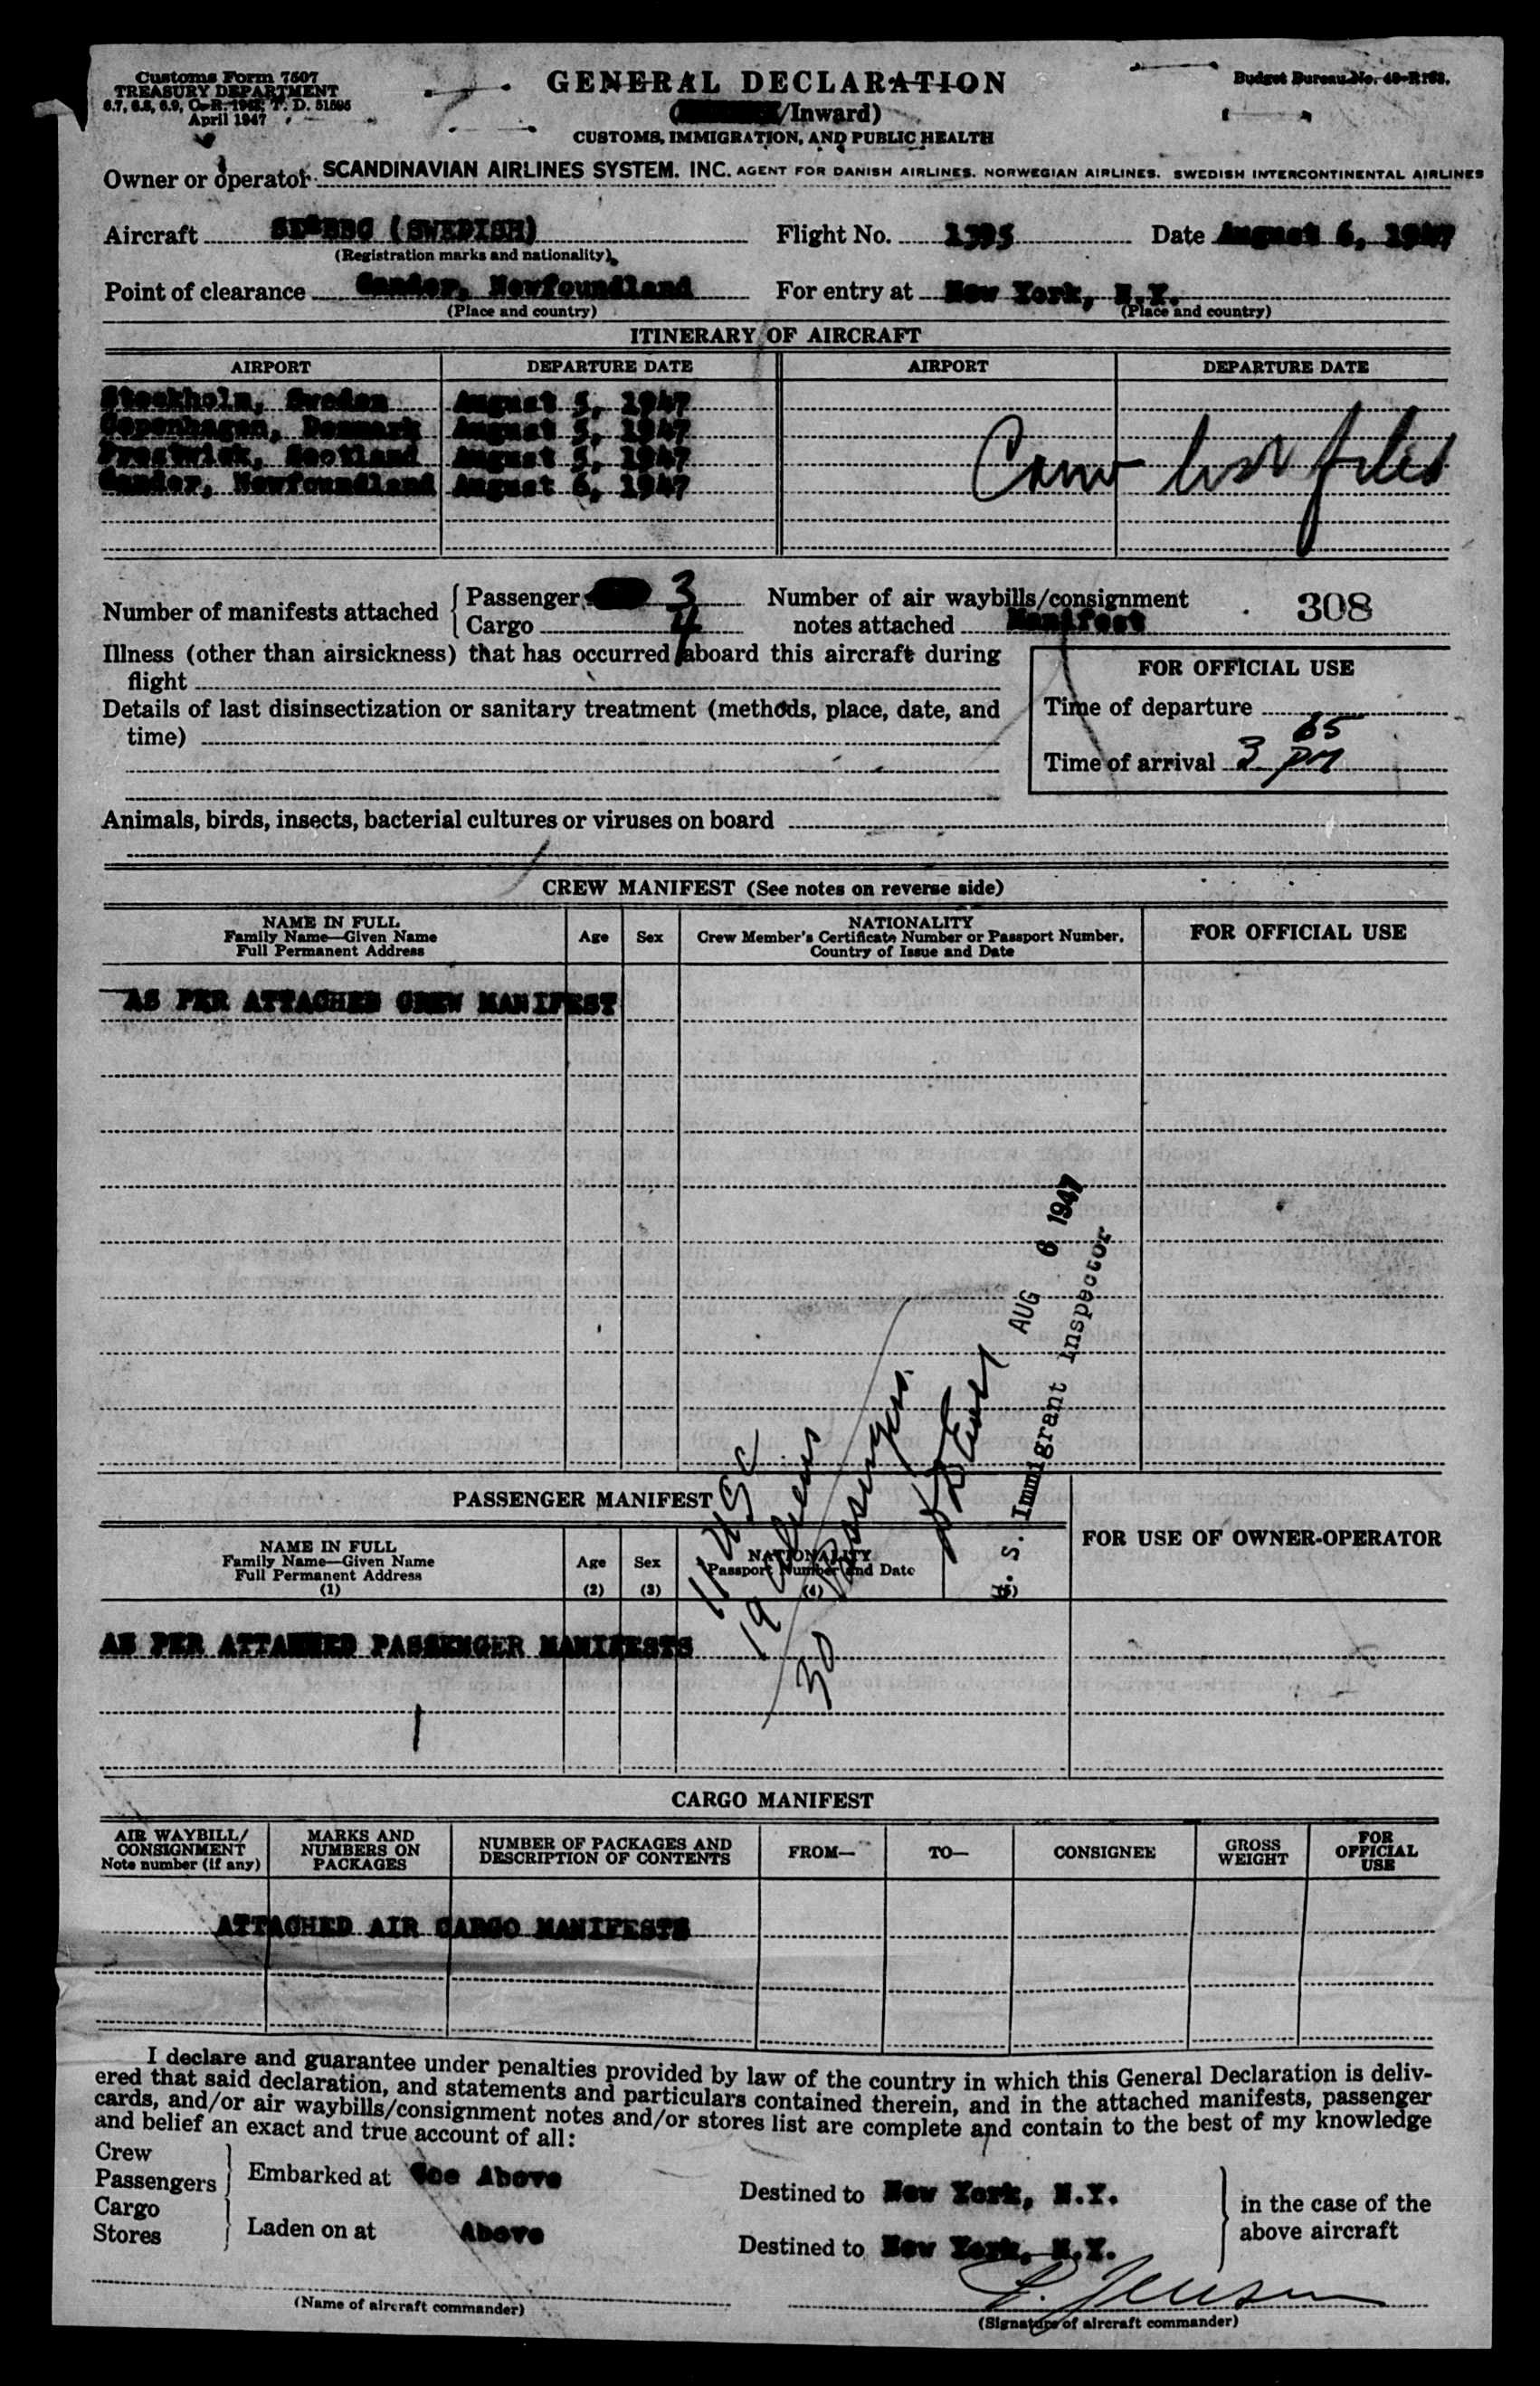 Customs Form 7507
TREASURY DEPARTMENT
6.7, 6.8, 6.9, C. R. 1943; T. D. 51595
April 1947
GENERAL DECLARATION
Budget Bureau No. 48-R163.
/Inward)
CUSTOMS, IMMIGRATION, AND PUBLIC HEALTH
Owner or operator SCANDINAVIAN AIRLINES SYSTEM. INC. AGENT FOR DANISH AIRLINES. NORWEGIAN AIRLINES. SWEDISH INTERCONTINENTAL AIRLINES
Aircraft (SWEDISH) Flight No. 1395 Date August 6, 1947
(Registration marks and nationality)
Point of clearance Gander, Newfoundland For entry at New York, N.Y.
(Place and country) (Place and country)
ITINERARY OF AIRCRAFT
AIRPORT DEPARTURE DATE AIRPORT DEPARTURE DATE
Stockholm, Sweden August 5, 1947
Copenhagen, Denmark August 5, 1947
Prestwick, Scotland August 5, 1947
Gander, Newfoundland August 6, 1947
Crew list filed
Number of manifests attached { Passenger 3 Number of air waybills/consignment 308
Cargo 4 notes attached Manifest
Illness (other than airsickness) that has occurred aboard this aircraft during
flight
FOR OFFICIAL USE
Details of last disinsectization or sanitary treatment (methods, place, date, and
time)
Time of departure
Time of arrival 3 PM
Animals, birds, insects, bacterial cultures or viruses on board
CREW MANIFEST (See notes on reverse side)
NAME IN FULL
Family Name—Given Name
Full Permanent Address
Age Sex
NATIONALITY
Crew Member's Certificate Number or Passport Number,
Country of Issue and Date
FOR OFFICIAL USE
AS PER ATTACHED CREW MANIFEST
11 USC
19 Aliens
30 Passengers
AUG 6 1947
U. S. Immigrant Inspector
PASSENGER MANIFEST
NAME IN FULL
Family Name—Given Name
Full Permanent Address
(1)
Age
(2)
Sex
(3)
NATIONALITY
Passport Number and Date
(4)
(5)
FOR USE OF OWNER-OPERATOR
AS PER ATTACHED PASSENGER MANIFESTS
CARGO MANIFEST
AIR WAYBILL/
CONSIGNMENT
Note number (if any)
MARKS AND
NUMBERS ON
PACKAGES
NUMBER OF PACKAGES AND
DESCRIPTION OF CONTENTS
FROM—
TO—
CONSIGNEE
GROSS
WEIGHT
FOR
OFFICIAL
USE
ATTACHED AIR CARGO MANIFESTS
I declare and guarantee under penalties provided by law of the country in which this General Declaration is deliv-
ered that said declaration, and statements and particulars contained therein, and in the attached manifests, passenger
cards, and/or air waybills/consignment notes and/or stores list are complete and contain to the best of my knowledge
and belief an exact and true account of all:
Crew
Passengers } Embarked at See Above Destined to New York, N.Y.
Cargo
Stores } Laden on at Above Destined to New York, N.Y.
} in the case of the
above aircraft
(Name of aircraft commander)
(Signature of aircraft commander)